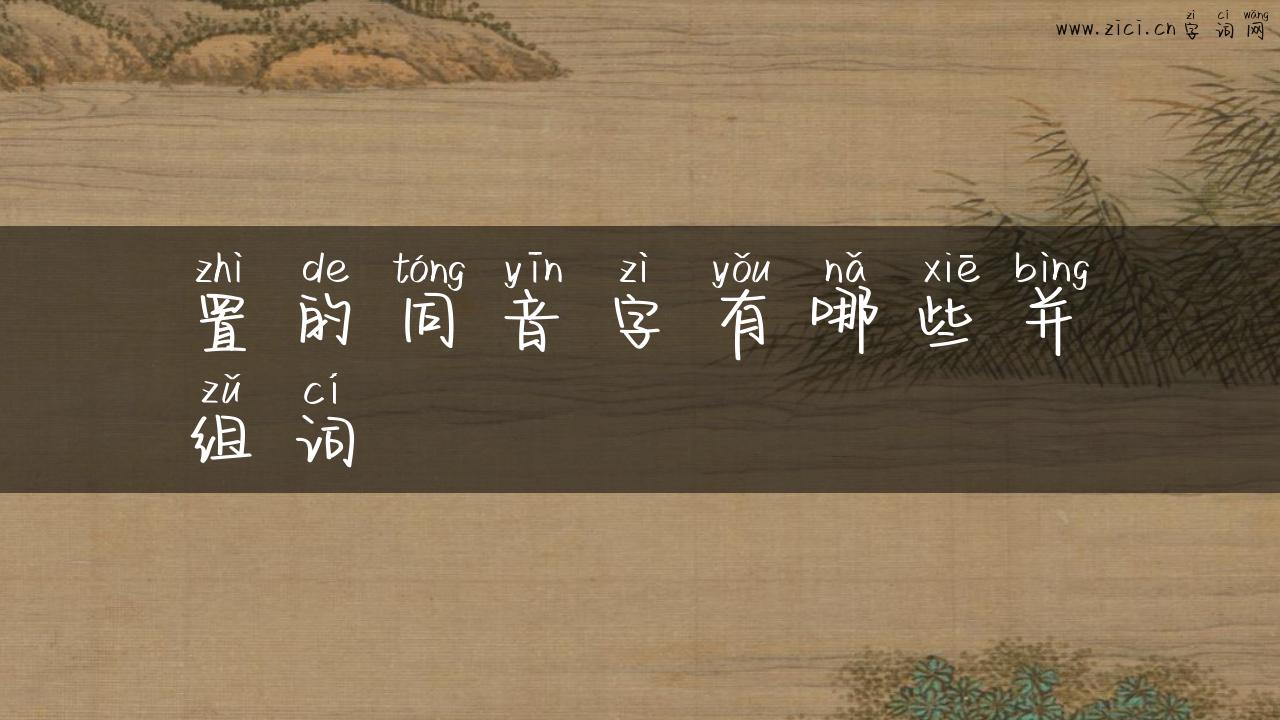 zì cí wǎng
www.zici.cn 字 词 网
zhì de tóng yīn zì yǒu nǎ xiē bìng
置 的 同 音 字 有 哪 些 并
zǔ cí
组 词